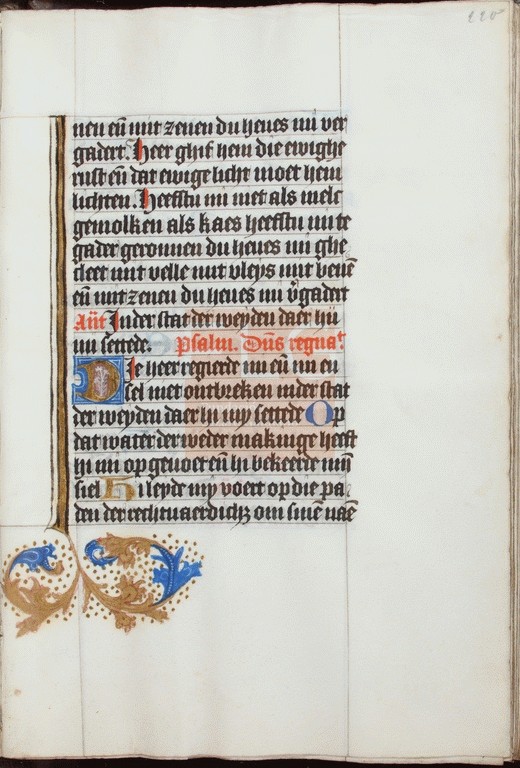 220
nen en̄ mit zenen du heues mi ver
gadert. Heer ghif hem die ewighe
rust en̄ dat ewige licht moet hem
lichten. Heefstu mi niet als melc
gemolken als kaes heefstu mi te
gader geronnen du heues mi ghe
cleet mit velle mit vleys mit benē
en̄ mit zenen du heues mi v̄gadert
An̄t In der stat der weyden daer hi
mi settede. Psalm. Dn̄s regnat
Die heer regierde mi en̄ mi en
sel niet ontbreken in der stat
der weyden daer hi my settede Op
dat water der weder makinge heeft
hi mi op geuoet en̄ hi bekeerde mijn
siel Hi leyde my voert op die pa
den der rechtuaerdich; om sinē naē